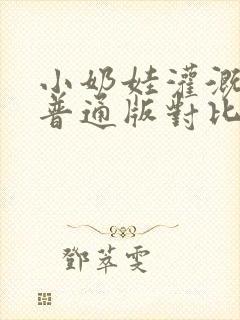 小奶娃灌溉
普通版對比
鄧萃雯